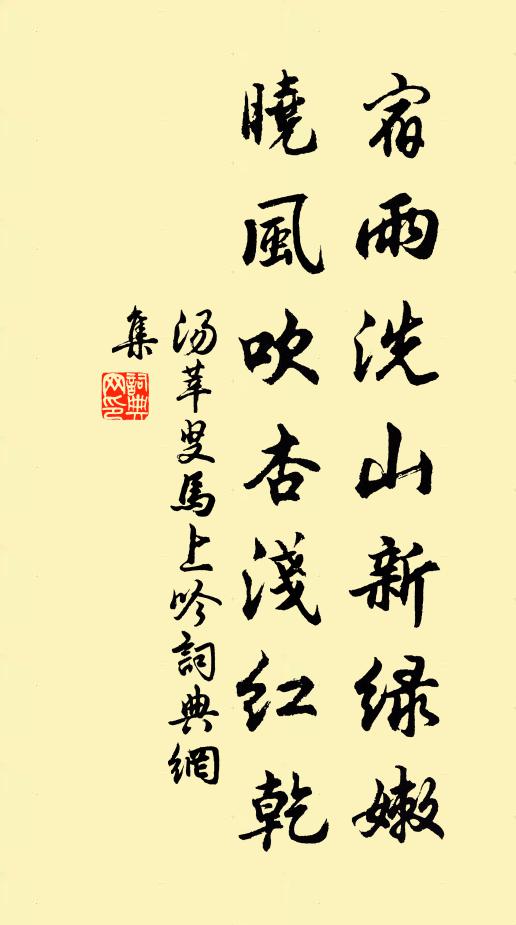 宿雨洗山新綠嫩
曉風吹杏淺紅乾
湯莘叟馬上吟詞典網
集
詞典
网印